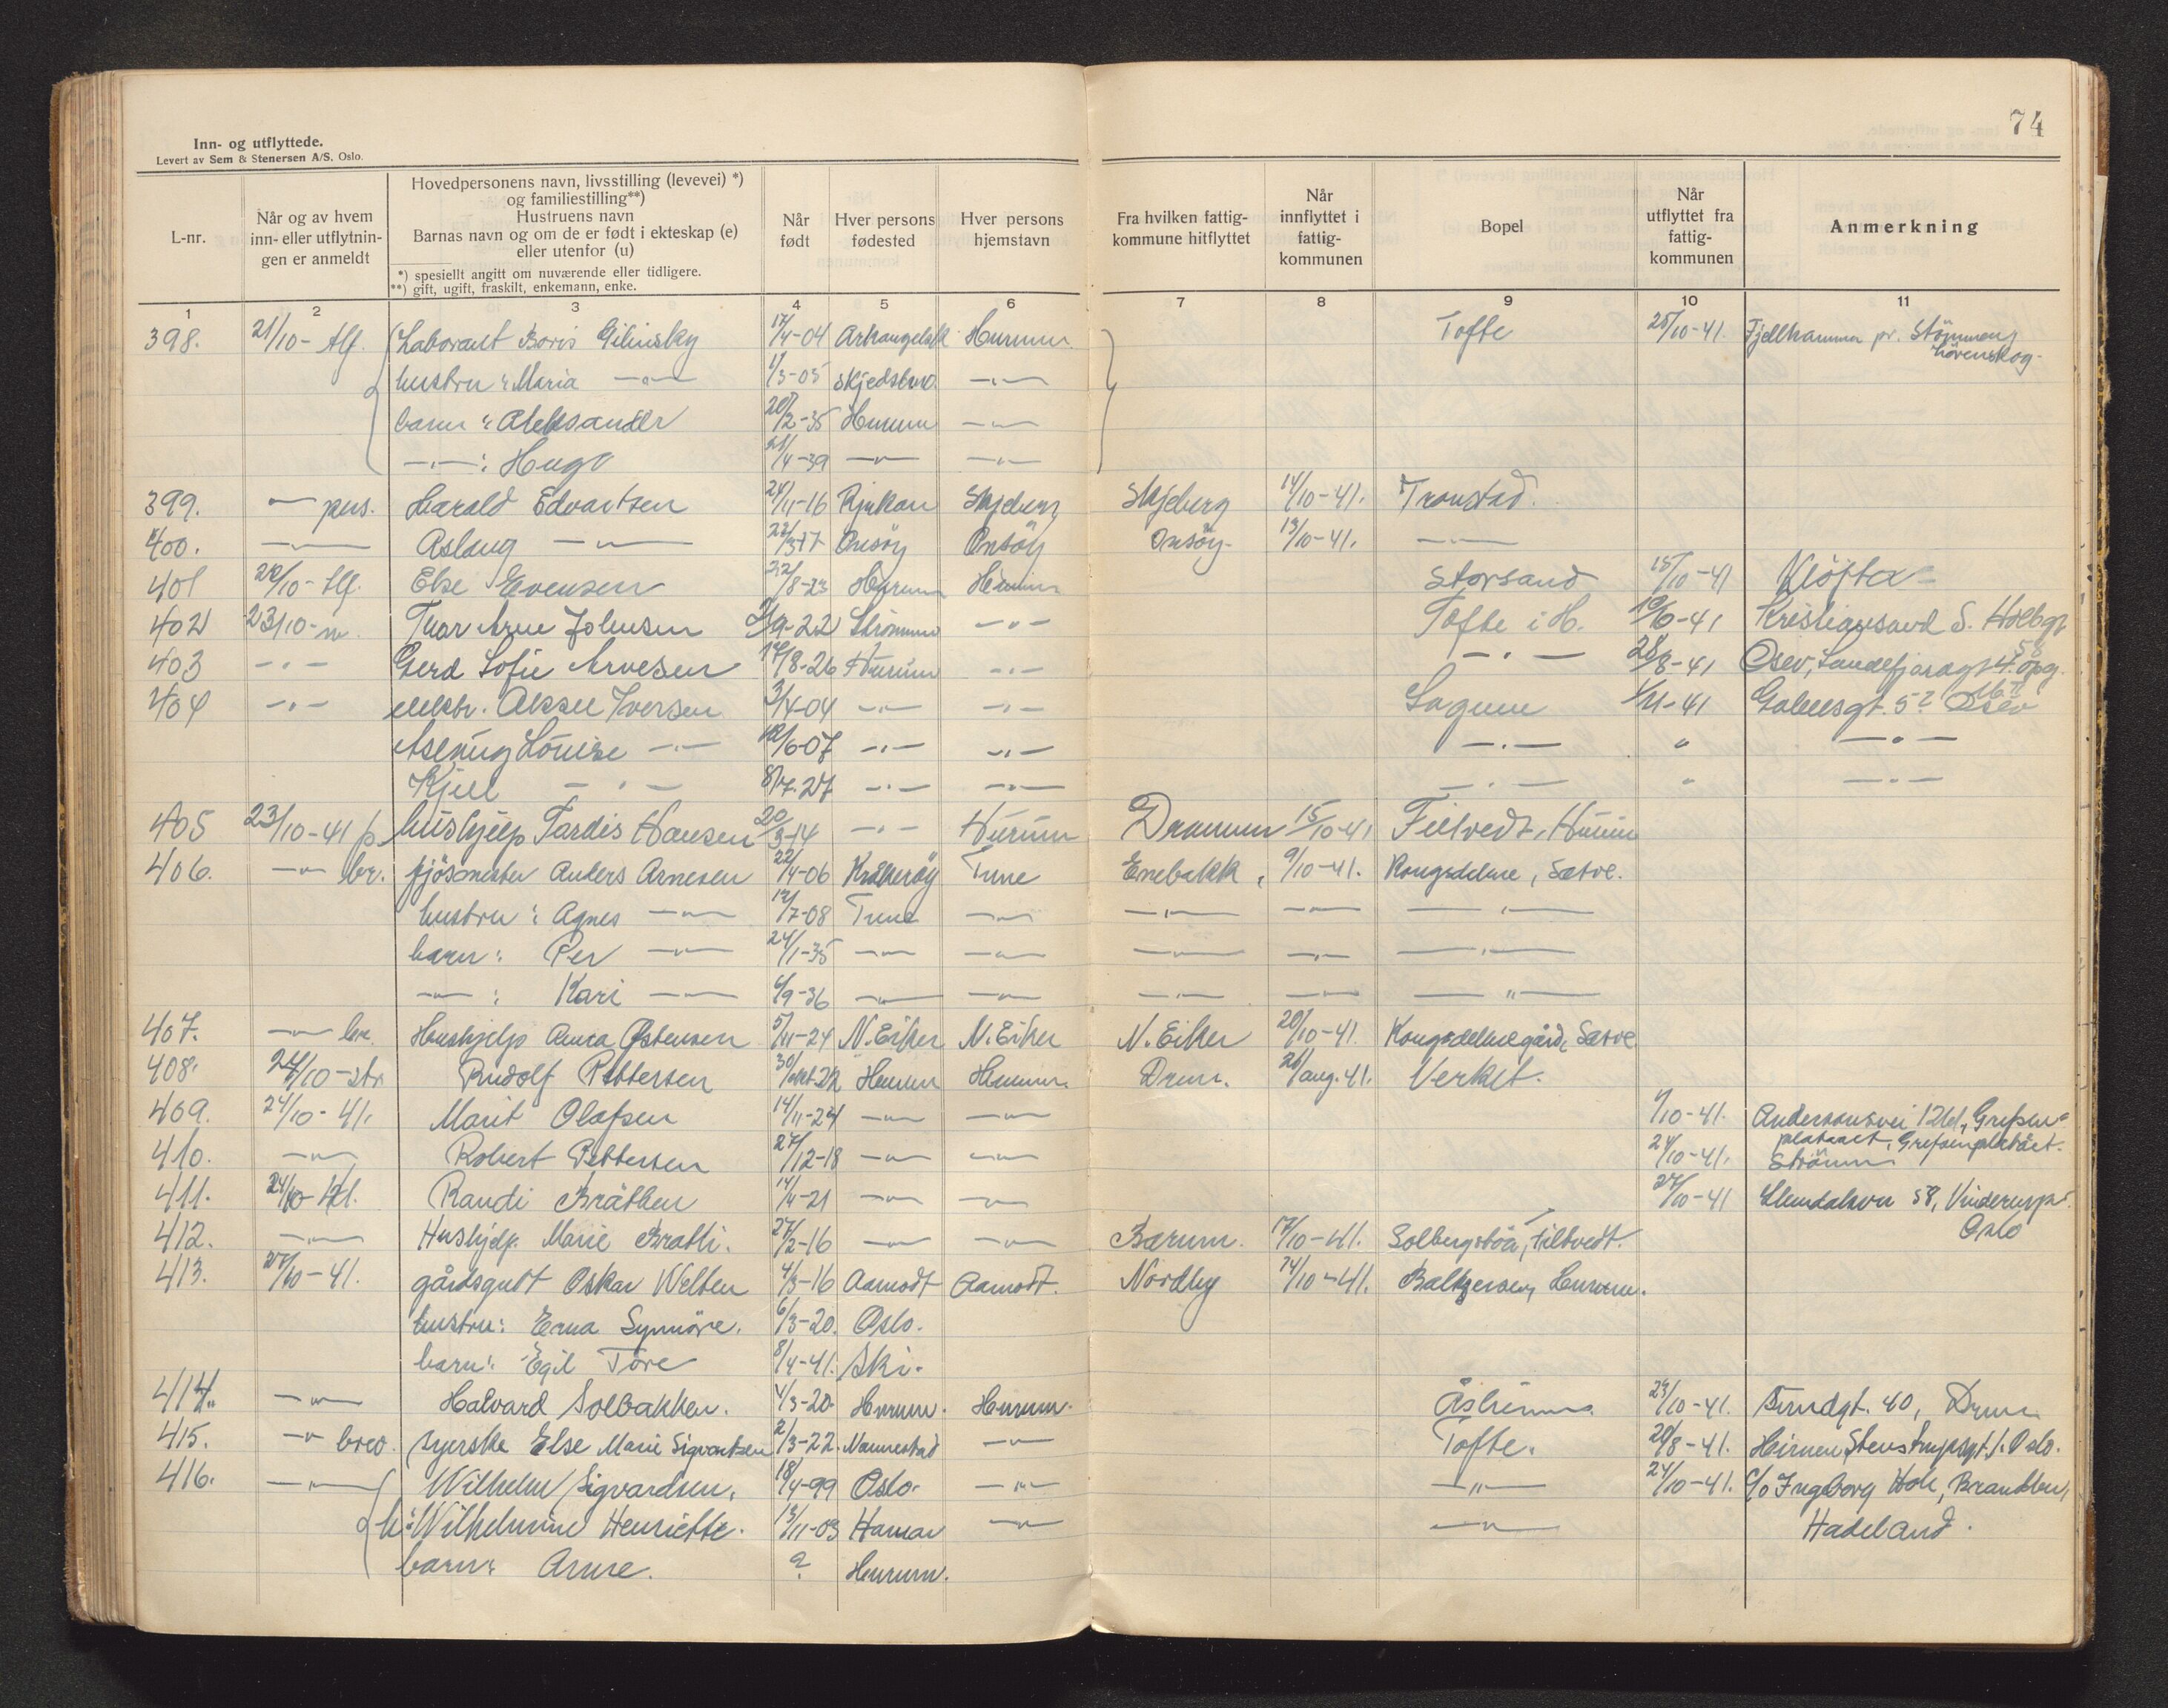 74
Inn- og utflyttede.
Levert av Sem & Stenersen A/S, Oslo.
L-nr.
Når og av hvem
inn- eller utflytnin-
gen er anmeldt
Hovedpersonens navn, livsstilling (levevei) *)
og familiestilling**)
Hustruens navn
Barnas navn og om de er født i ekteskap (e)
eller utenfor (u)
*) spesiellt angitt om nuværende eller tidligere.
**) gift, ugift, fraskilt, enkemann, enke.
Når
født
Hver persons
fødested
Hver persons
hjemstavn
Fra hvilken fattig-
kommune hitflyttet
Når
innflyttet i
fattig-
kommunen
Bopel
Når
utflyttet fra
fattig-
kommunen
Anmerkning
1 2 3 4 5 6 7 8 9 10 11
398. 21/10- tlf. Laborant Boris Gilinsky 17/4-04 Arkangelsk Hurum Tofte 25/10-41. Fjellhammer pr. Strömmen,
Lörenskog-
hustru: Maria -"- 1/3-05 Skjedsmo -"-
barn: Aleksander 20/2-35 Hurum -"-
-"-: Hugo 21/4-39 -"- -"-
399. -"- pers. Harald Edvartsen 24/11-16 Rjukan Skjeberg Skjeberg 14/10-41. Tronstad.
400. -"- Aslaug -"- 22/3-17 Onsöy Onsöy Onsöy- 13/10-41. -"-
401 22/10- tlf. Else Evensen 22/8-23 Hurum Hurum Storsand 15/10-41 Klöfta-
402 23/10- m. Thor Arne Johnsen /9-22 Strömmen -"- Tofte i H. 10/10-41 Kristiansand S. Holbgt.
58
403 -"- Gerd Sofie Arvesen 17/8-26 Hurum -"- -"- 28/8-41 Oslo, Sandefjordgt 4. opg.
404 -"- elektr. Aksel Iversen 3/4-04 -"- -"- Sagene 1/11-41 Gabelsgt. 52 Oslo
Aslaug Louise -"- 12/6-07 -"- -"- -"- " -"-
Kjell -"- 8/7-27 -"- -"- -"- " -"-
405 23/10-41 p. hushjelp Tordis Hansen 20/3-14 -"- Hurum Drammen 15/10-41 Filtvedt, Hurum
406. -"- br. fjösmester Anders Arnesen 22/4-06 Kråkeröy Tune Enebakk, 9/10-41. Kongsdelene, Sætre.
hustru: Agnes -"- 12/7-08 Tune -"- -"- -"- -"-
barn: Per -"- 24/1-35 -"- -"- -"- -"- -"-
-"-: Kari -"- 6/9-36 -"- -"- -"- -"- -"-
407. -"- br. Hushjelp Anna Östensen 5/11-24 N. Eiker N. Eiker N. Eiker 20/10-41. Kongsdelene gård, Sætre
408. 24/10- Rudolf Pettersen 30/okt-22 Hurum Hurum. Drm. 26/aug. 41. Verket.
409. 24/10-41. Marit Olafsen 14/11-24 -"- -"- 1/10-41. Andersonsvei 12bd, Grefsen-
platået, Grefsenplatået.
410. -"- Robert Pettersen 27/12-18 -"- -"- 24/10-41. Strömm
411. 24/10-41. Randi Bråthen 14/4-21 -"- -"- 27/10-41 Slemdalsvn 58, Vinderen pr.
Oslo
412. -"- Hushjelp. Marie Bratli. 27/2-16 -"- -"- Bærum. 17/10-41. Solbergstöa, Filtvedt.
413. 27/10-41. gårdsgutt Oskar Welten 4/3-16 Aamodt Aamodt. Nordby 14/10-41. Baltzersen, Hurum.
hustru: Erna Synnöve. 6/3-20. Oslo.
barn: Egil Tore 8/4-41. Ski.
414. -"- Halvard Solbakken. 4/3-20 Hurum. Hurum. Åsheim 23/10-41. Sundgt. 40, Drm.
415. -"- brev. syerske Else Marie Sigvartsen 2/3-22. Nannestad -"- Tofte. 20/8-41. Heimen, Stenstrupsgt. 1. Oslo.
416. -"- Wilhelm Sigvardsen. 18/4-99 Oslo. -"- -"- 24/10-41. c/o Ingeborg Hole, Brandbu,
h: Wilhelmine Henriette. 13/11-03 Hamar -"- -"- Hadeland.
barn: Arne. ? Hurum.